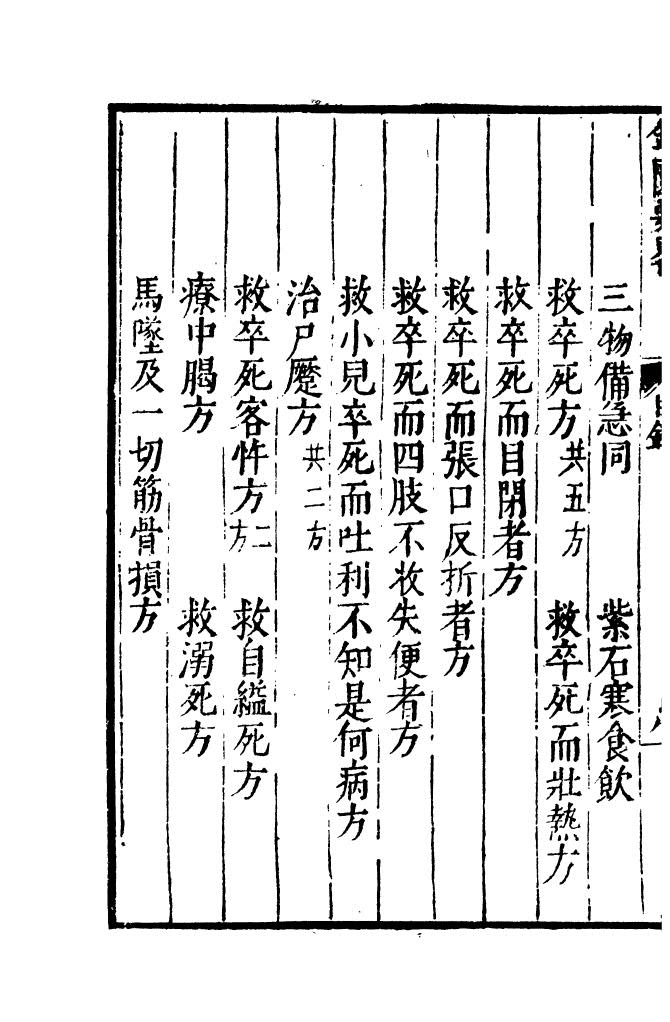 金匱要畧 目錄
三物備急同 紫石寒食飲
救卒死方共五方 救卒死而壯熱方
救卒死而目閉者方
救卒死而張口反折者方
救卒死而四肢不收失便者方
救小兒卒死而吐利不知是何病方
治尸蹷方共二方
救卒死客忤方二方 救自縊死方
療中暍方 救溺死方
馬墜及一切筋骨損方